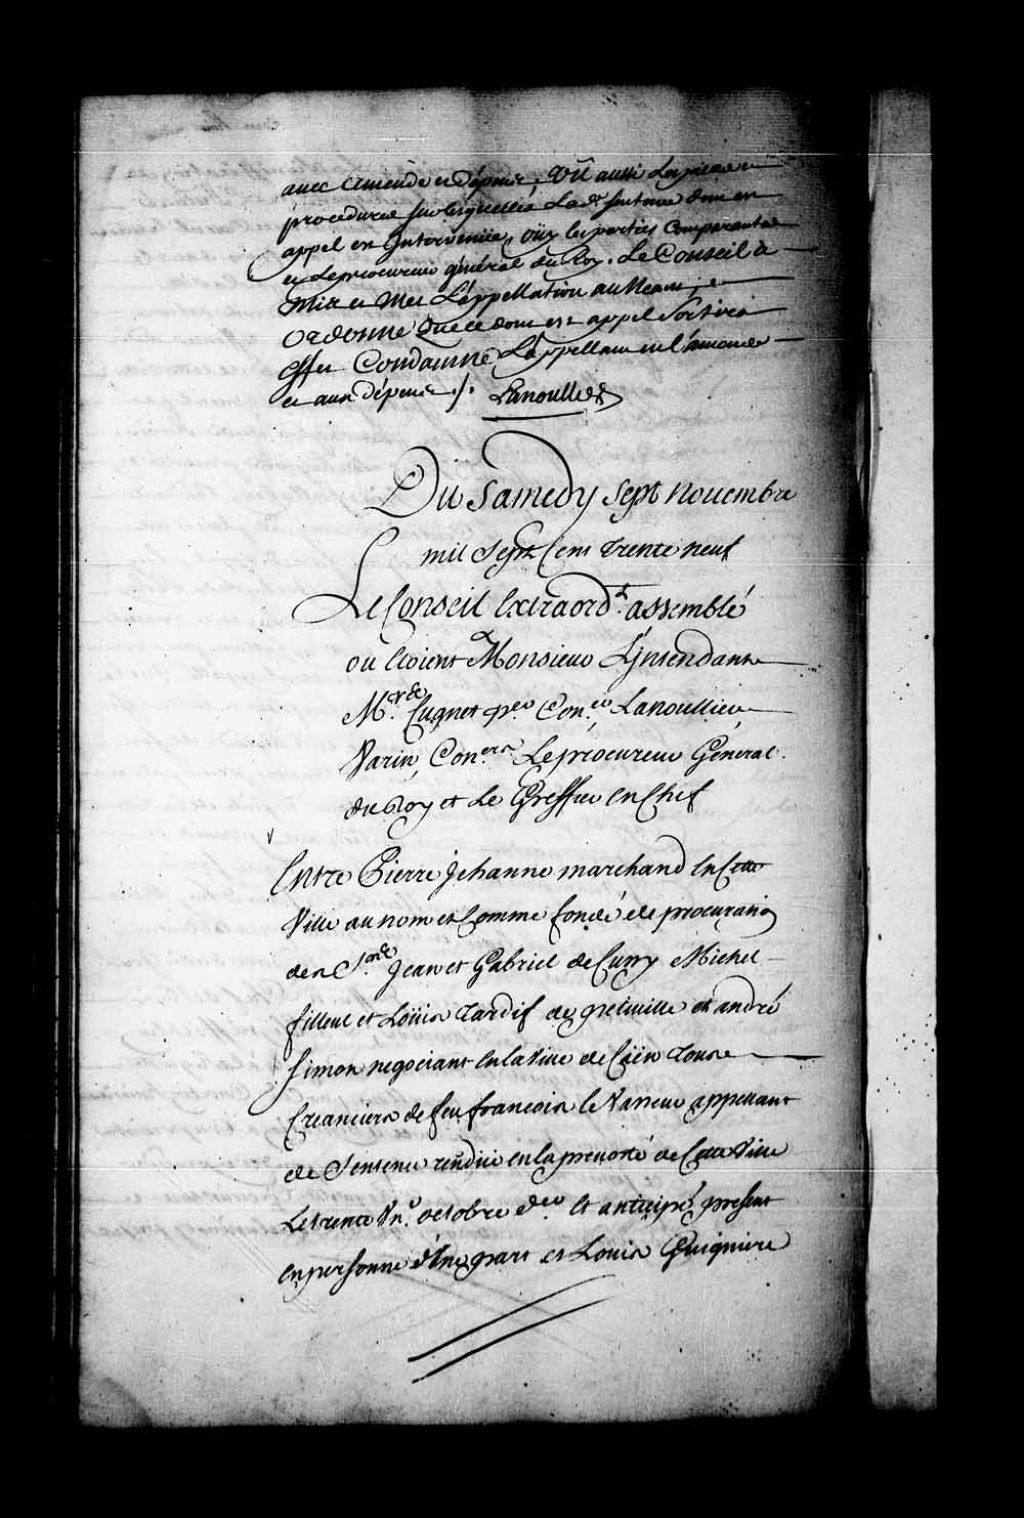 avec amende et dépens, Vû aussi les pieces et
procedures sur lesquelles La de. sentence dont est
appel est Intervenüe, oüy les parties comparantes
et Le procureur général du Roy. Le Conseil a
Mis et Met L'appellation au Neant, et
ordonne Que ce dont est appel Sortira
effet Condamne L'appellant en l'amende
et aux dépens ./. Lanoullier
Du Samedy sept Novembre
mil Sept Cens Trente neuf
Le Conseil Extraord.t assemblé
ou Etoient Monsieur L'Intendant
M.rs Cugnet p.er Con.er Lanoullier
Varin, Con.ers Le procureur Général
du Roy et Le Greffier en Chef
Entre Pierre Jehanne marchand En Cette
Ville au nom et Comme fondé de procuration
des S.rs Jean et Gabriel de Cussy Michel
filleul et Loüis Tardif de et andré
Simon negociant En la Ville de Caën Tous
Creanciers de feu francois le Vasseur appellant
de Sentence rendüe en la prevosté de Cette Ville
Le trente Vn.e octobre d.er Et anticipé present
En personne d'Vne part et Louis Guigniere